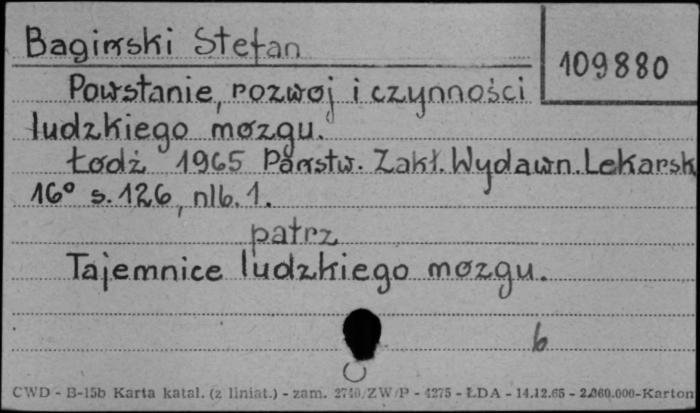 Bagiński Stefan
109880
Powstanie, rozwój i czynności
ludzkiego mózgu.
Łódź 1965 Państw. Zakł. Wydawn. Lekarsk
16° s. 126, nlb. 1.
patrz
Tajemnice ludzkiego mózgu.
b
CWD - B-15b Karta katal. (z liniat.) - zam. 2740/ZW/P - 4275 - ŁDA - 14.12.65 - 2.060.000-Karton